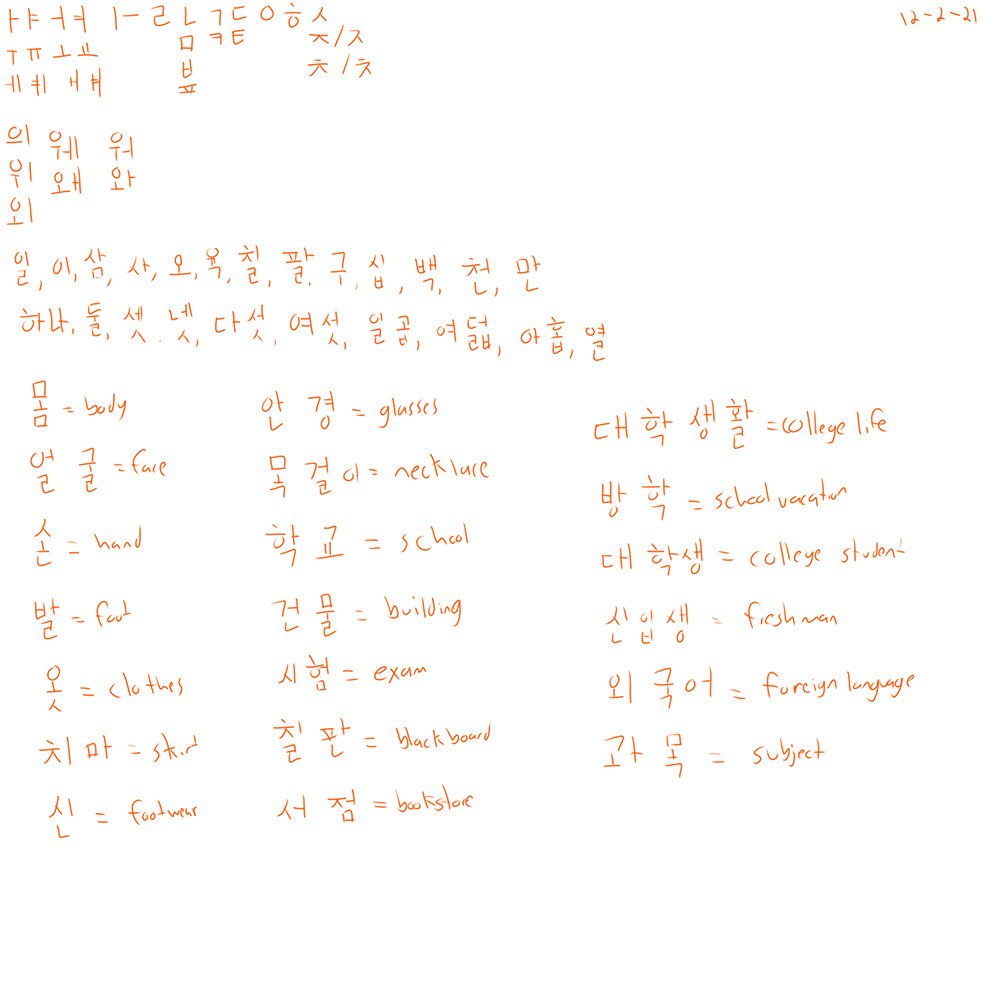 ㅏㅑ ㅓㅕ ㅣㅡ ㄹ ㄴ ㄱㄷ ㅇ ㅎ ㅅ 12-2-21
ㅜㅠ ㅗㅛ ㅁ ㅋㅌ ㅈ/ㅈ
ㅔㅖ ㅐㅒ ㅂ ㅊ/ㅊ
ㅍ
의 웨 워
위 왜 와
외
일, 이, 삼, 사, 오, 육, 칠, 팔, 구, 십, 백, 천, 만
하나, 둘, 셋, 넷, 다섯, 여섯, 일곱, 여덟, 아홉, 열
몸 = body 안경 = glasses 대학생활 = college life
얼굴 = face 목걸이 = necklace 방학 = school vacation
손 = hand 학교 = school 대학생 = college student
발 = foot 건물 = building 신입생 = freshman
옷 = clothes 시험 = exam 외국어 = foreign language
치마 = skirt 칠판 = blackboard 과목 = subject
신 = footwear 서점 = bookstore